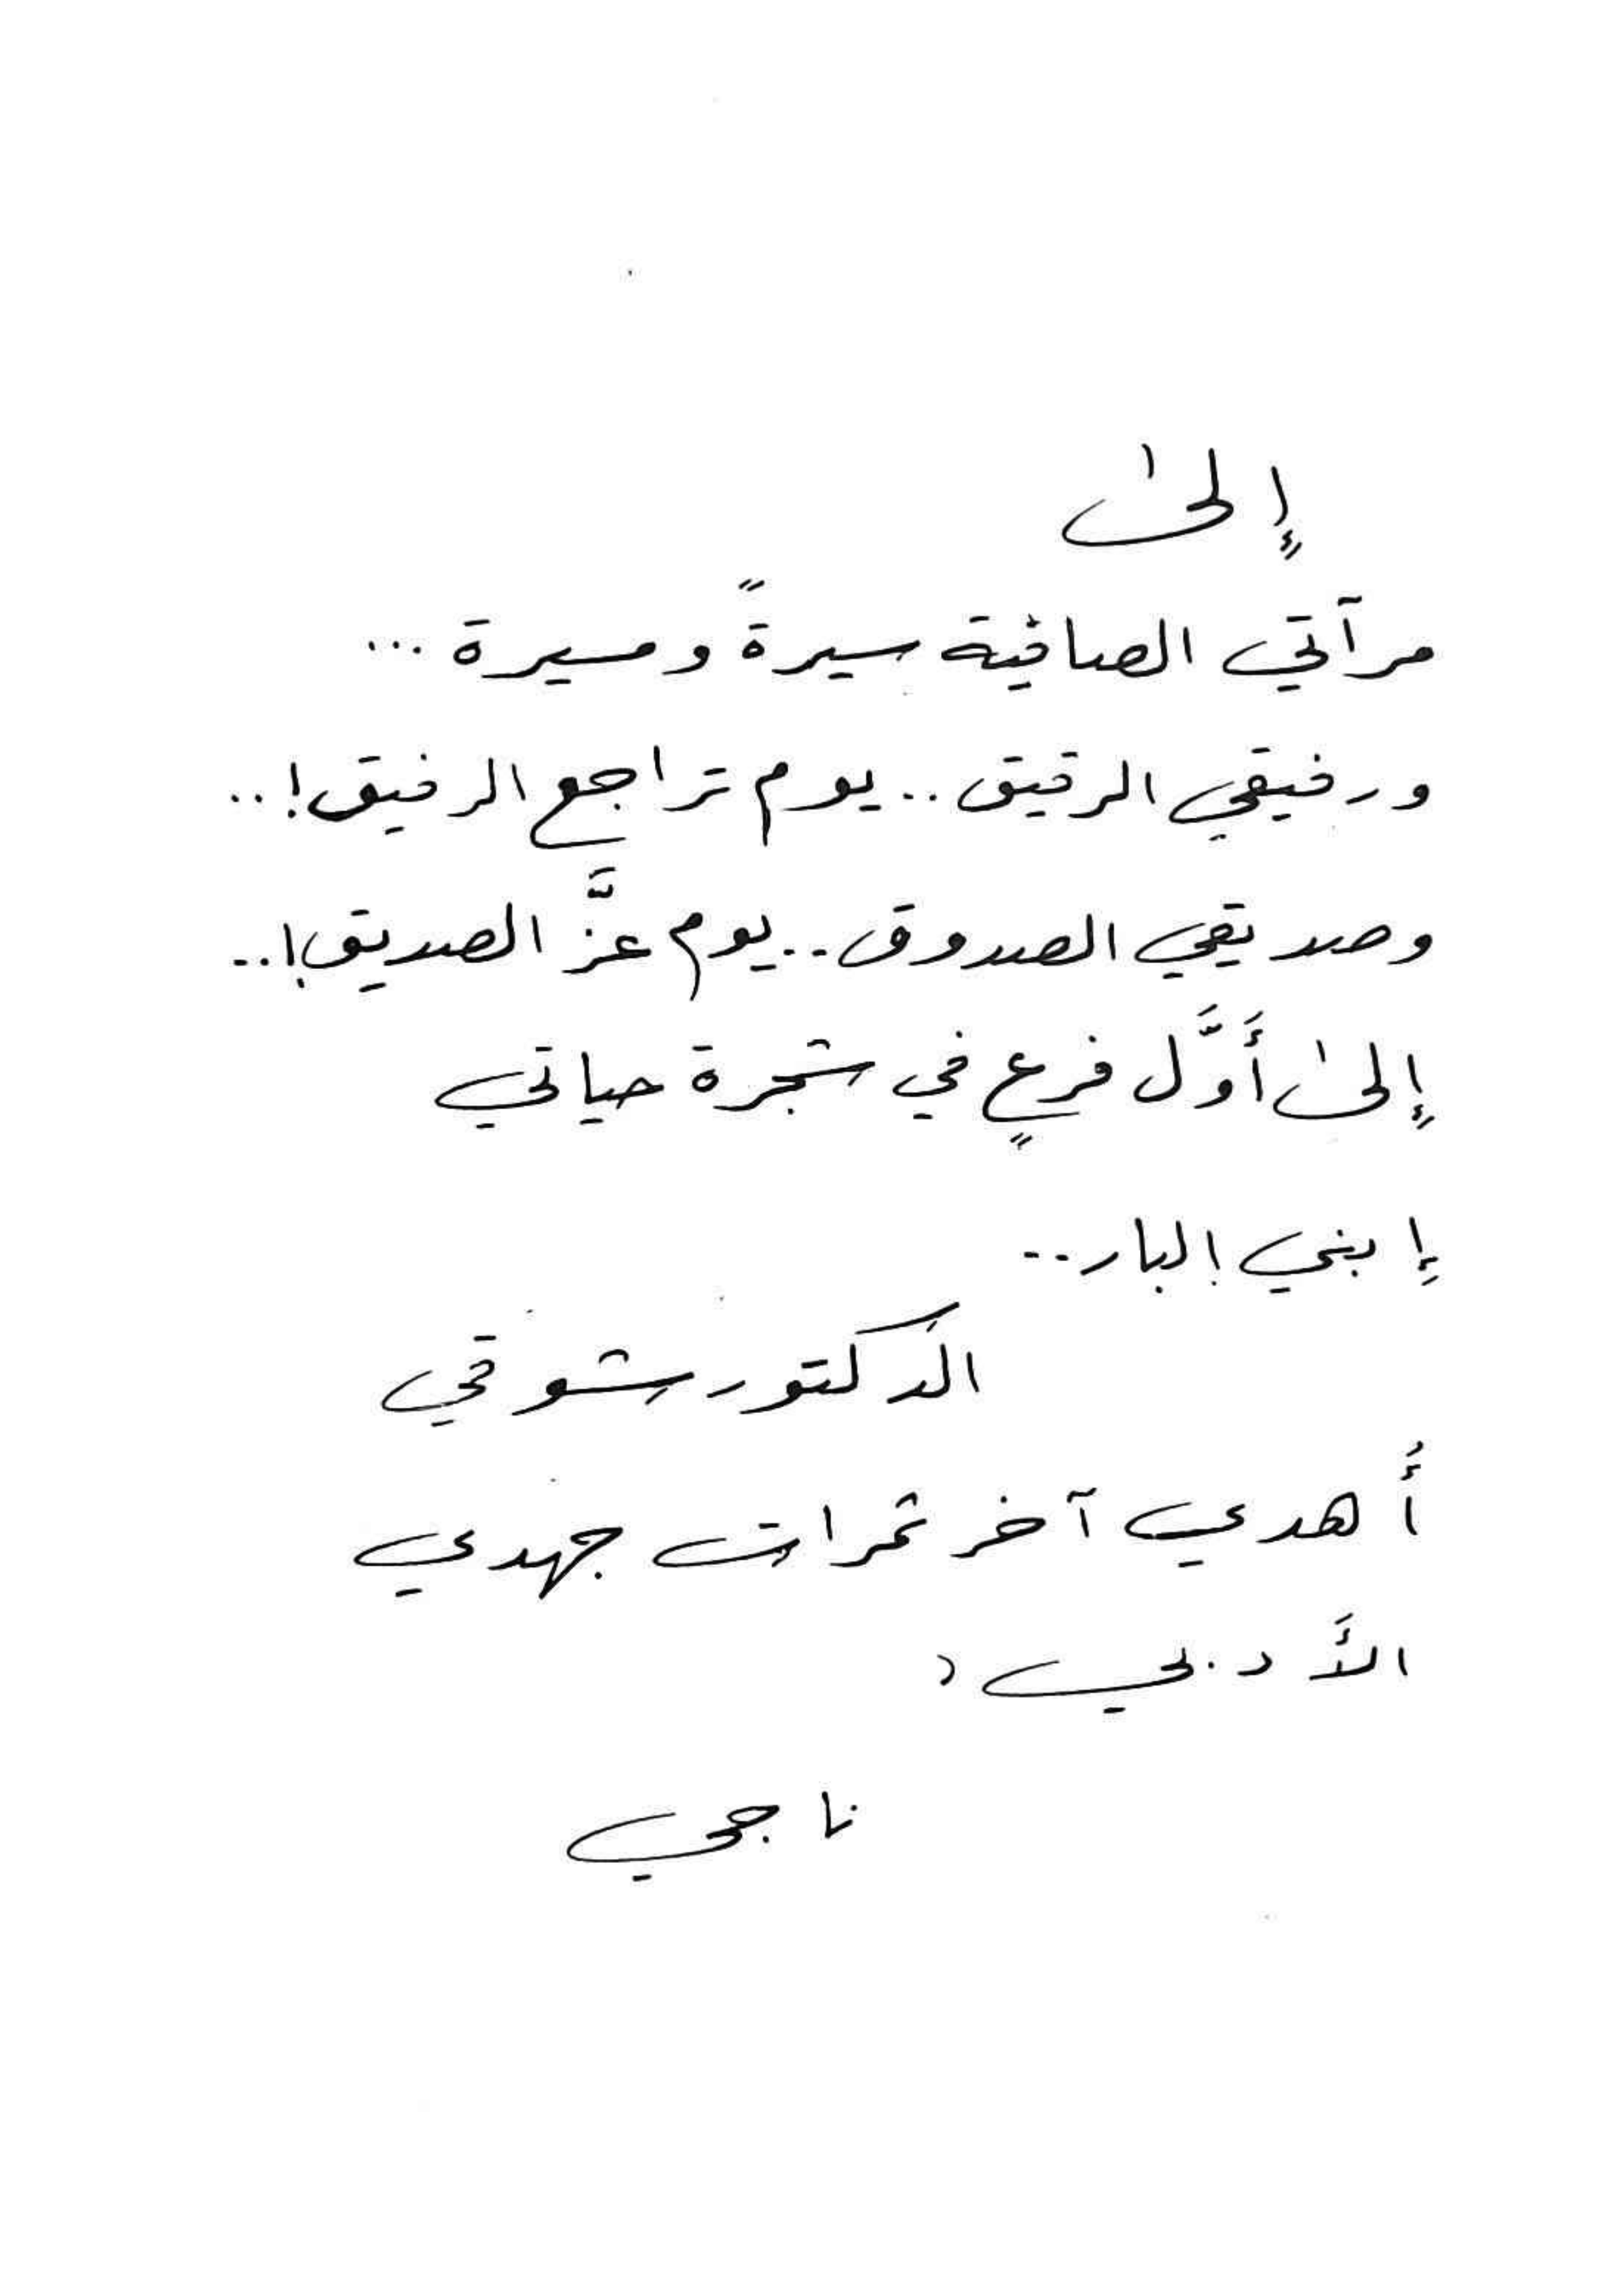 إِلىٰ
مرآتي الصافية سيرةً ومسيرة ...
ورفيقي الرقيق .. يوم تراجع الرفيق! ..
وصديقي الصدوق .. يوم عزَّ الصديق! ..
إِلىٰ أَوَّل فرعٍ في شجرة حياتي
إِبني البار ..
الدكتور شوقي
أُهدي آخر ثمراتِ جهدي
الأَدبي،
ناجي